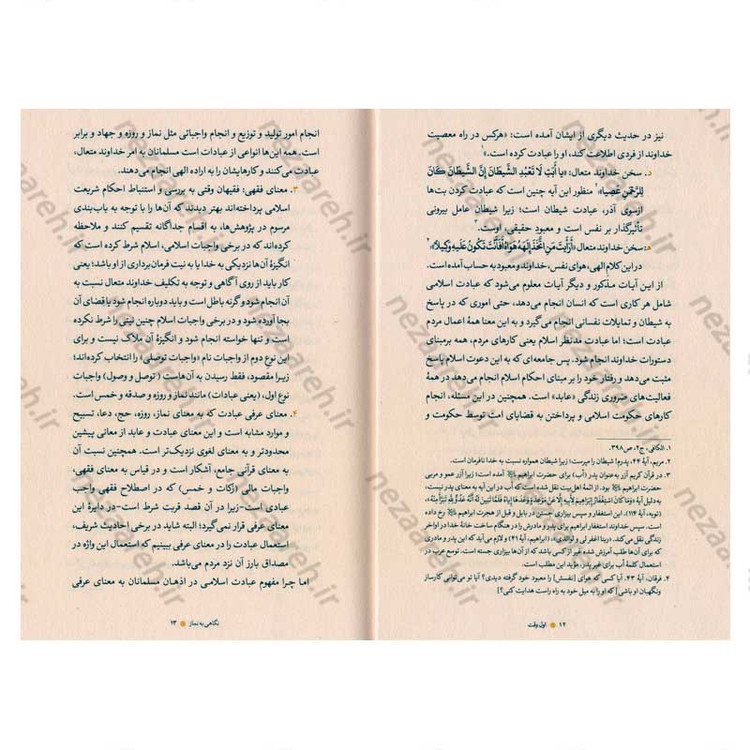 نیز در حدیث دیگری از ایشان آمده است: «هرکس در راه معصیت
خداوند از فردی اطلاعت کند، او را عبادت کرده است.»¹
د. سخن خداوند متعال: «یا أَبَتِ لَا تَعْبُدِ الشَّيْطَانَ إِنَّ الشَّيْطَانَ كَانَ
لِلرَّحْمَنِ عَصِيًّا»² منظور این آیه چنین است که عبادت کردن بت‌ها
ازسوی آذر، عبادت شیطان است؛ زیرا شیطان عامل بیرونی
تأثیرگذار بر نفس است و معبودِ حقیقی، اوست.³
ه. سخن خداوند متعال: «أَرَأَيْتَ مَنِ اتَّخَذَ إِلَهَهُ هَوَاهُ أَفَأَنْتَ تَكُونُ عَلَيْهِ وَكِيلًا»⁴
در این کلام الهی، هوای نفس، خداوند و معبود به حساب آمده است.
از این آیات مذکور و دیگر آیات معلوم می‌شود که عبادت اسلامی
شامل هر کاری است که انسان انجام می‌دهد، حتی اموری که در پاسخ
به شیطان و تمایلات نفسانی انجام می‌گیرد و به این معنا همهٔ اعمال مردم
عبادت است؛ اما عبادت مدنظر اسلام یعنی کارهای مردم، همه برمبنای
دستورات خداوند انجام شود. پس جامعه‌ای که به این دعوت اسلام پاسخ
مثبت می‌دهد و رفتار خود را بر مبنای احکام اسلام انجام می‌دهد در همهٔ
فعالیت‌های ضروری زندگی «عابد» است. همچنین در این مسئله، انجام
کارهای حکومت اسلامی و پرداختن به قضایای امت توسط حکومت و
۱. الکافی، ج۲، ص۳۹۸.
۲. مریم، آیهٔ ۴۴، پدرم! شیطان را مپرست؛ زیرا شیطان همواره نسبت به خدا نافرمان است.
۳. در قرآن کریم آزر به‌عنوان پدر (أب) حضرت ابراهیم آمده است؛ زیرا آزر عمو و مربی
حضرت ابراهیم بود. از ائمهٔ اهل بیت نقل شده است که أب در این آیه به معنای پدر نیست،
به دلیل آیهٔ «وَمَا كَانَ اسْتِغْفَارُ إِبْرَاهِيمَ لِأَبِيهِ إِلَّا عَنْ مَوْعِدَةٍ وَعَدَهَا إِيَّاهُ فَلَمَّا تَبَيَّنَ لَهُ أَنَّهُ عَدُوٌّ لِلَّهِ تَبَرَّأَ مِنْهُ»،
(توبه، آیهٔ ۱۱۴). این استغفار و سپس بیزاری جستن در بابل و قبل از هجرت ابراهیم رخ داده
است. سپس خداوند استغفار ابراهیم برای پدر و مادرش را در هنگام ساخت خانهٔ خدا در اواخر
زندگی نقل می‌کند. «ربنا اغفر لی و لوالدی»، (ابراهیم، آیهٔ ۴۱) و لازم می‌آید که این پدر و مادری
که برای آن‌ها طلب آمرزش شده غیر از کسی باشد که از آن‌ها بیزاری جسته است. توسع عرب در
استعمال کلمهٔ أب برای غیر پدر، مؤید این مطلب است.
۴. فرقان، آیهٔ ۴۳. آیا کسی که هوای [نفسش] را معبود خود گرفته دیدی؟ آیا تو می‌توانی کارساز
و نگهبان او باشی[ که او را به میل خود به راه راست هدایت کنی؟]
۱۲ اول وقت
انجام امور تولید و توزیع و انجام واجباتی مثل نماز و روزه و جهاد و برابر
است. همه این‌ها انواعی از عبادات است مسلمانان به امر خداوند متعال،
عبادت می‌کنند و کارهایشان را به اراده الهی انجام می‌دهند.
۳. معنای فقهی: فقیهان وقتی به بررسی و استنباط احکام شریعت
اسلامی پرداخته‌اند بهتر دیدند که آن‌ها را با توجه به باب‌بندی
مرسوم در پژوهش‌ها، به اقسام جداگانه تقسیم کنند و ملاحظه
کرده‌اند که در برخی واجبات اسلامی، اسلام شرط کرده است که
انگیزهٔ آن‌ها نزدیکی به خدا یا به نیت فرمان‌برداری از او باشد؛ یعنی
کار باید از روی آگاهی و توجه به تکلیف خداوند متعال نسبت به
آن انجام شود وگرنه باطل است و باید دوباره انجام شود یا قضای آن
بجا آورده شود و در برخی واجبات اسلام چنین نیتی را شرط نکرده
است و تنها خواسته انجام شود و انگیزهٔ آن ملاک نیست و برای
این نوعِ دوم از واجبات نام «واجبات توصلی» را انتخاب کرده‌اند؛
زیرا مقصود، فقط رسیدن به آن‌هاست (توصل و وصول) واجبات
نوع اول، (یعنی عبادات) مانند نماز و روزه و صدقه و خمس است.
۴. معنای عرفی عبادت که به معنای نماز، روزه، حج، دعا، تسبیح
و موارد مشابه است و این معنای عبادت و عابد از معانی پیشین
محدودتر و به معنای لغوی نزدیک‌تر است. همچنین نسبت آن
به معنای قرآنی جامع، آشکار است و در قیاس به معنای فقهی،
واجبات مالی (زکات و خمس) که در اصطلاح فقهی واجب
عبادی است-زیرا در آن قصد قربت شرط است-در دایرهٔ این
معنای عرفی قرار نمی‌گیرد؛ البته شاید در برخی احادیث شریف،
استعمال عبادت را در معنای عرفی ببینیم که استعمال این واژه در
مصداق بارز آن نزد مردم می‌باشد.
اما چرا مفهوم عبادت اسلامی در اذهان مسلمانان به معنای عرفی
نگاهی به نماز ۱۳
nezaareh.ir